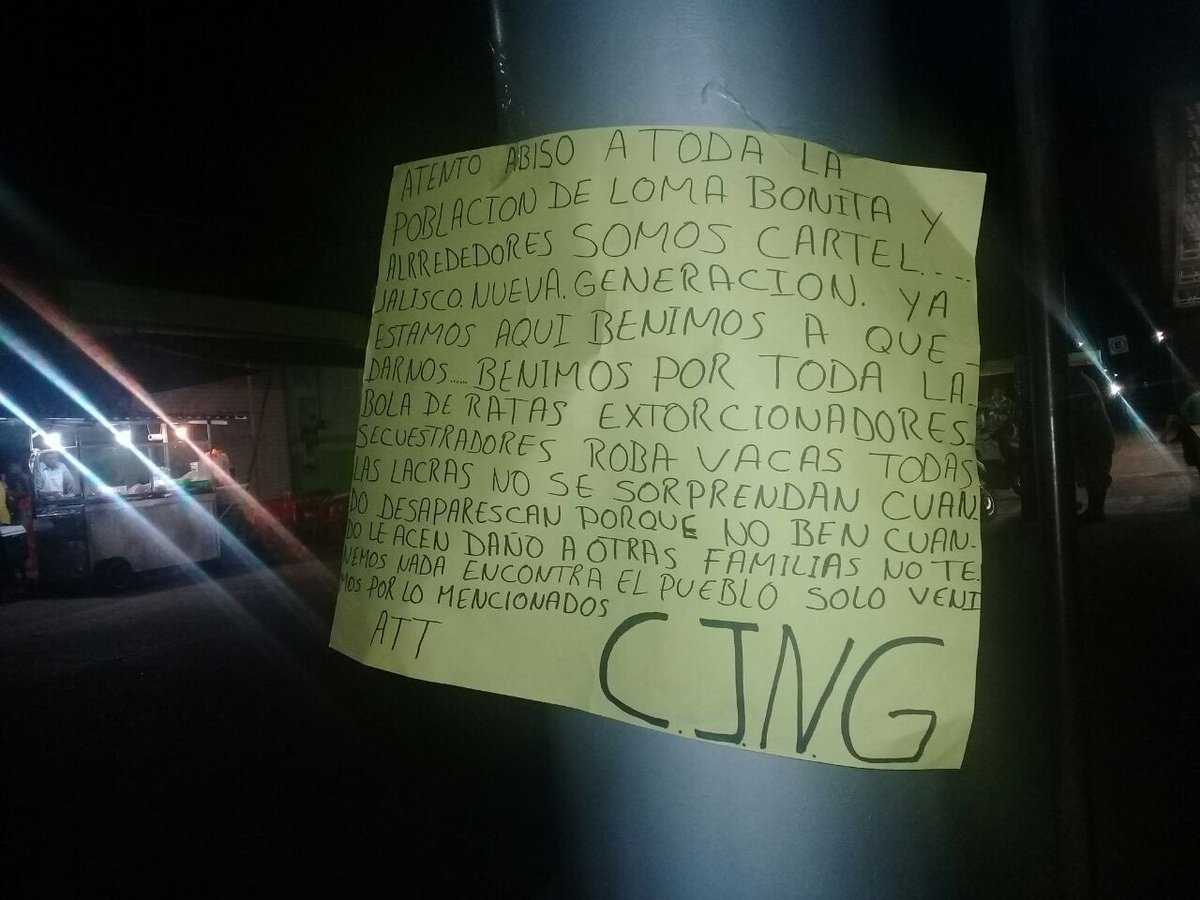 ATENTO ABISO A TODA LA
POBLACION DE LOMA BONITA Y
ALRREDEDORES SOMOS CARTEL....
JALISCO. NUEVA. GENERACION. YA
ESTAMOS AQUI BENIMOS A QUE
DARNOS..... BENIMOS POR TODA LA
BOLA DE RATAS EXTORCIONADORES.
SECUESTRADORES ROBA VACAS TODAS
LAS LACRAS NO SE SORPRENDAN CUAN
DO DESAPARESCAN PORQUE NO BEN CUAN-
DO LE ACEN DAÑO A OTRAS FAMILIAS NO TE.
NEMOS NADA ENCONTRA EL PUEBLO SOLO VENI
MOS POR LO MENCIONADOS
ATT
C.J.N.G